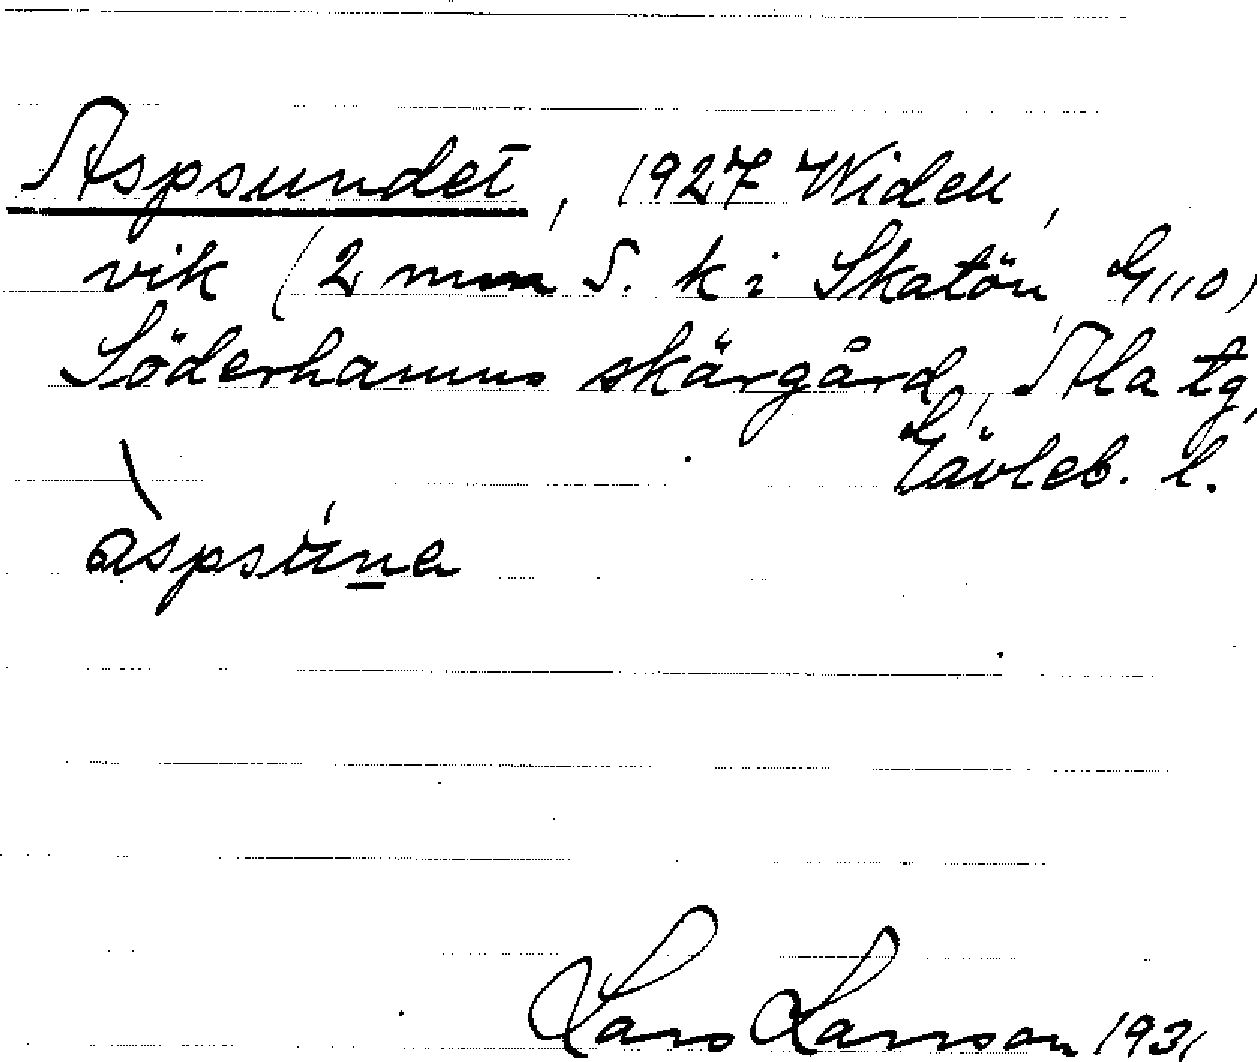 Aspsundet, 1927 Widell,
vik (2 mm S. k i Skatön, G110)
Söderhamns skärgård, Ala tg,
Gävleb. l.
àspsúna
Lars Larsson 1931